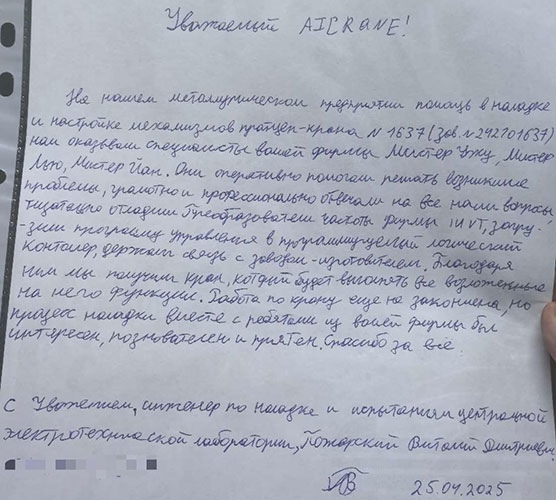 Уважаемый AICRANE!
На нашем металлургическом предприятии помощь в наладке
и настройке механизмов пратцен-крана N 1637 (зав. N 242701637)
нам оказывали специалисты вашей фирмы Мистер Чжу, Мистер
Лью, Мистер Йан. Они оперативно помогали решать возникшие
проблемы, грамотно и профессионально отвечали на все наши вопросы
тщательно отладили Преобразователи частоты фирмы INVT, загру-
-зили программу управления в программируемый логический
контролер, держали связь с заводом-изготовителем. Благодаря
ним мы получили кран, который будет выполнять все возложенные
на него функции. Работа по крану еще не закончена, но
процесс наладки вместе с ребятами из вашей фирмы был
интересен, познавателен и приятен. Спасибо за все.
С Уважением, инженер по наладке и испытаниям центральной
электротехнической лаборатории, Пожарский Виталий Дмитриевич
25.04.2025